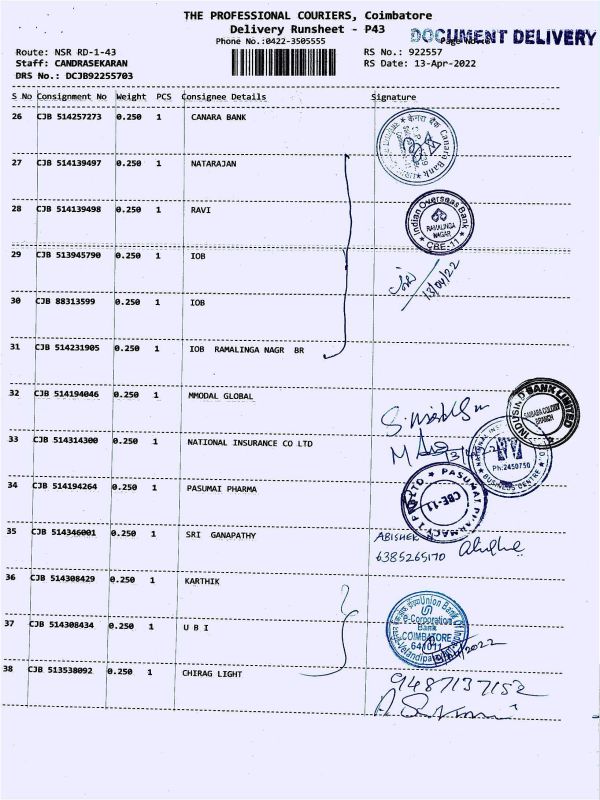 THE PROFESSIONAL COURIERS, Coimbatore
Delivery Runsheet - P43
DOCUMENT DELIVERY
Phone No.:0422-3505555
Route: NSR RD-1-43
RS No.: 922557
Staff: CANDRASEKARAN
RS Date: 13-Apr-2022
DRS No.: DCJB92255703
S No Consignment No Weight PCS Consignee Details Signature
26 CJB 514257273 0.250 1 CANARA BANK
केनरा बैंक Canara Bank
27 CJB 514139497 0.250 1 NATARAJAN
28 CJB 514139498 0.250 1 RAVI
Indian Overseas Bank
RAMALINGA
NAGAR
CBE-11
29 CJB 513945790 0.250 1 IOB
13/04/22
30 CJB 88313599 0.250 1 IOB
31 CJB 514231905 0.250 1 IOB RAMALINGA NAGR BR
32 CJB 514194046 0.250 1 MMODAL GLOBAL
INDUSIND BANK LIMITED
SAIBABA COLONY
BRANCH
33 CJB 514314300 0.250 1 NATIONAL INSURANCE CO LTD
Ph:2450750
BUSINESS CENTRE
34 CJB 514194264 0.250 1 PASUMAI PHARMA
PASUMAI PHARMACY
CBE-11
35 CJB 514346001 0.250 1 SRI GANAPATHY
ABISHEK
6385265170
36 CJB 514308429 0.250 1 KARTHIK
37 CJB 514308434 0.250 1 U B I
Union Bank Of India
e-Corporation
Bank
COIMBATORE
641011
38 CJB 513538092 0.250 1 CHIRAG LIGHT
9487137152